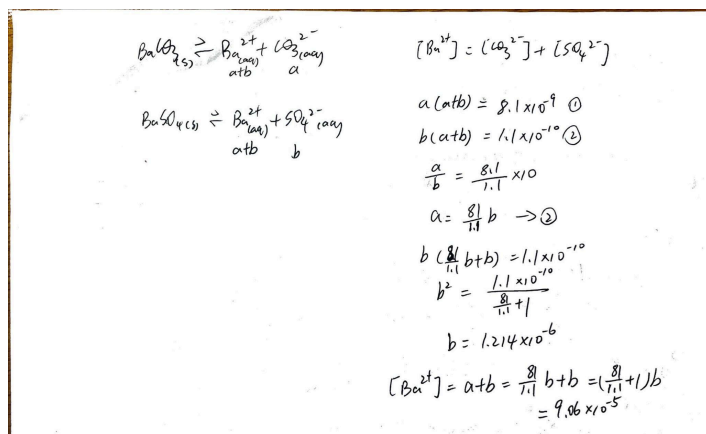 BaCO3(s) ⇌ Ba2+(aq) + CO3 2-(aq)
a+b a
BaSO4(s) ⇌ Ba2+(aq) + SO4 2-(aq)
a+b b
[Ba2+] = [CO3 2-] + [SO4 2-]
a(a+b) = 8.1×10-9 ①
b(a+b) = 1.1×10-10 ②
a/b = 8.1/1.1 ×10
a = 81/1.1 b → ②
b(81/1.1 b+b) = 1.1×10-10
b2 = 1.1×10-10 / (81/1.1 + 1)
b = 1.214×10-6
[Ba2+] = a+b = 81/1.1 b+b = (81/1.1 +1)b
= 9.06×10-5